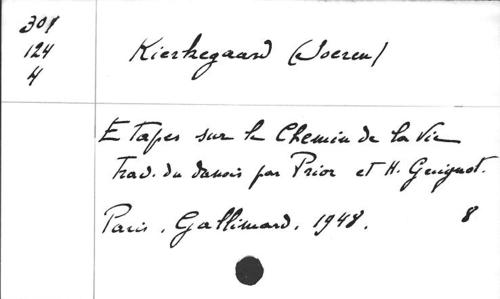 301
124
4
Kierkegaard (Soeren)
Etapes sur le Chemin de la Vie
Trad. du danois par Prior et H. Guignot.
Paris, Gallimard, 1948. 8